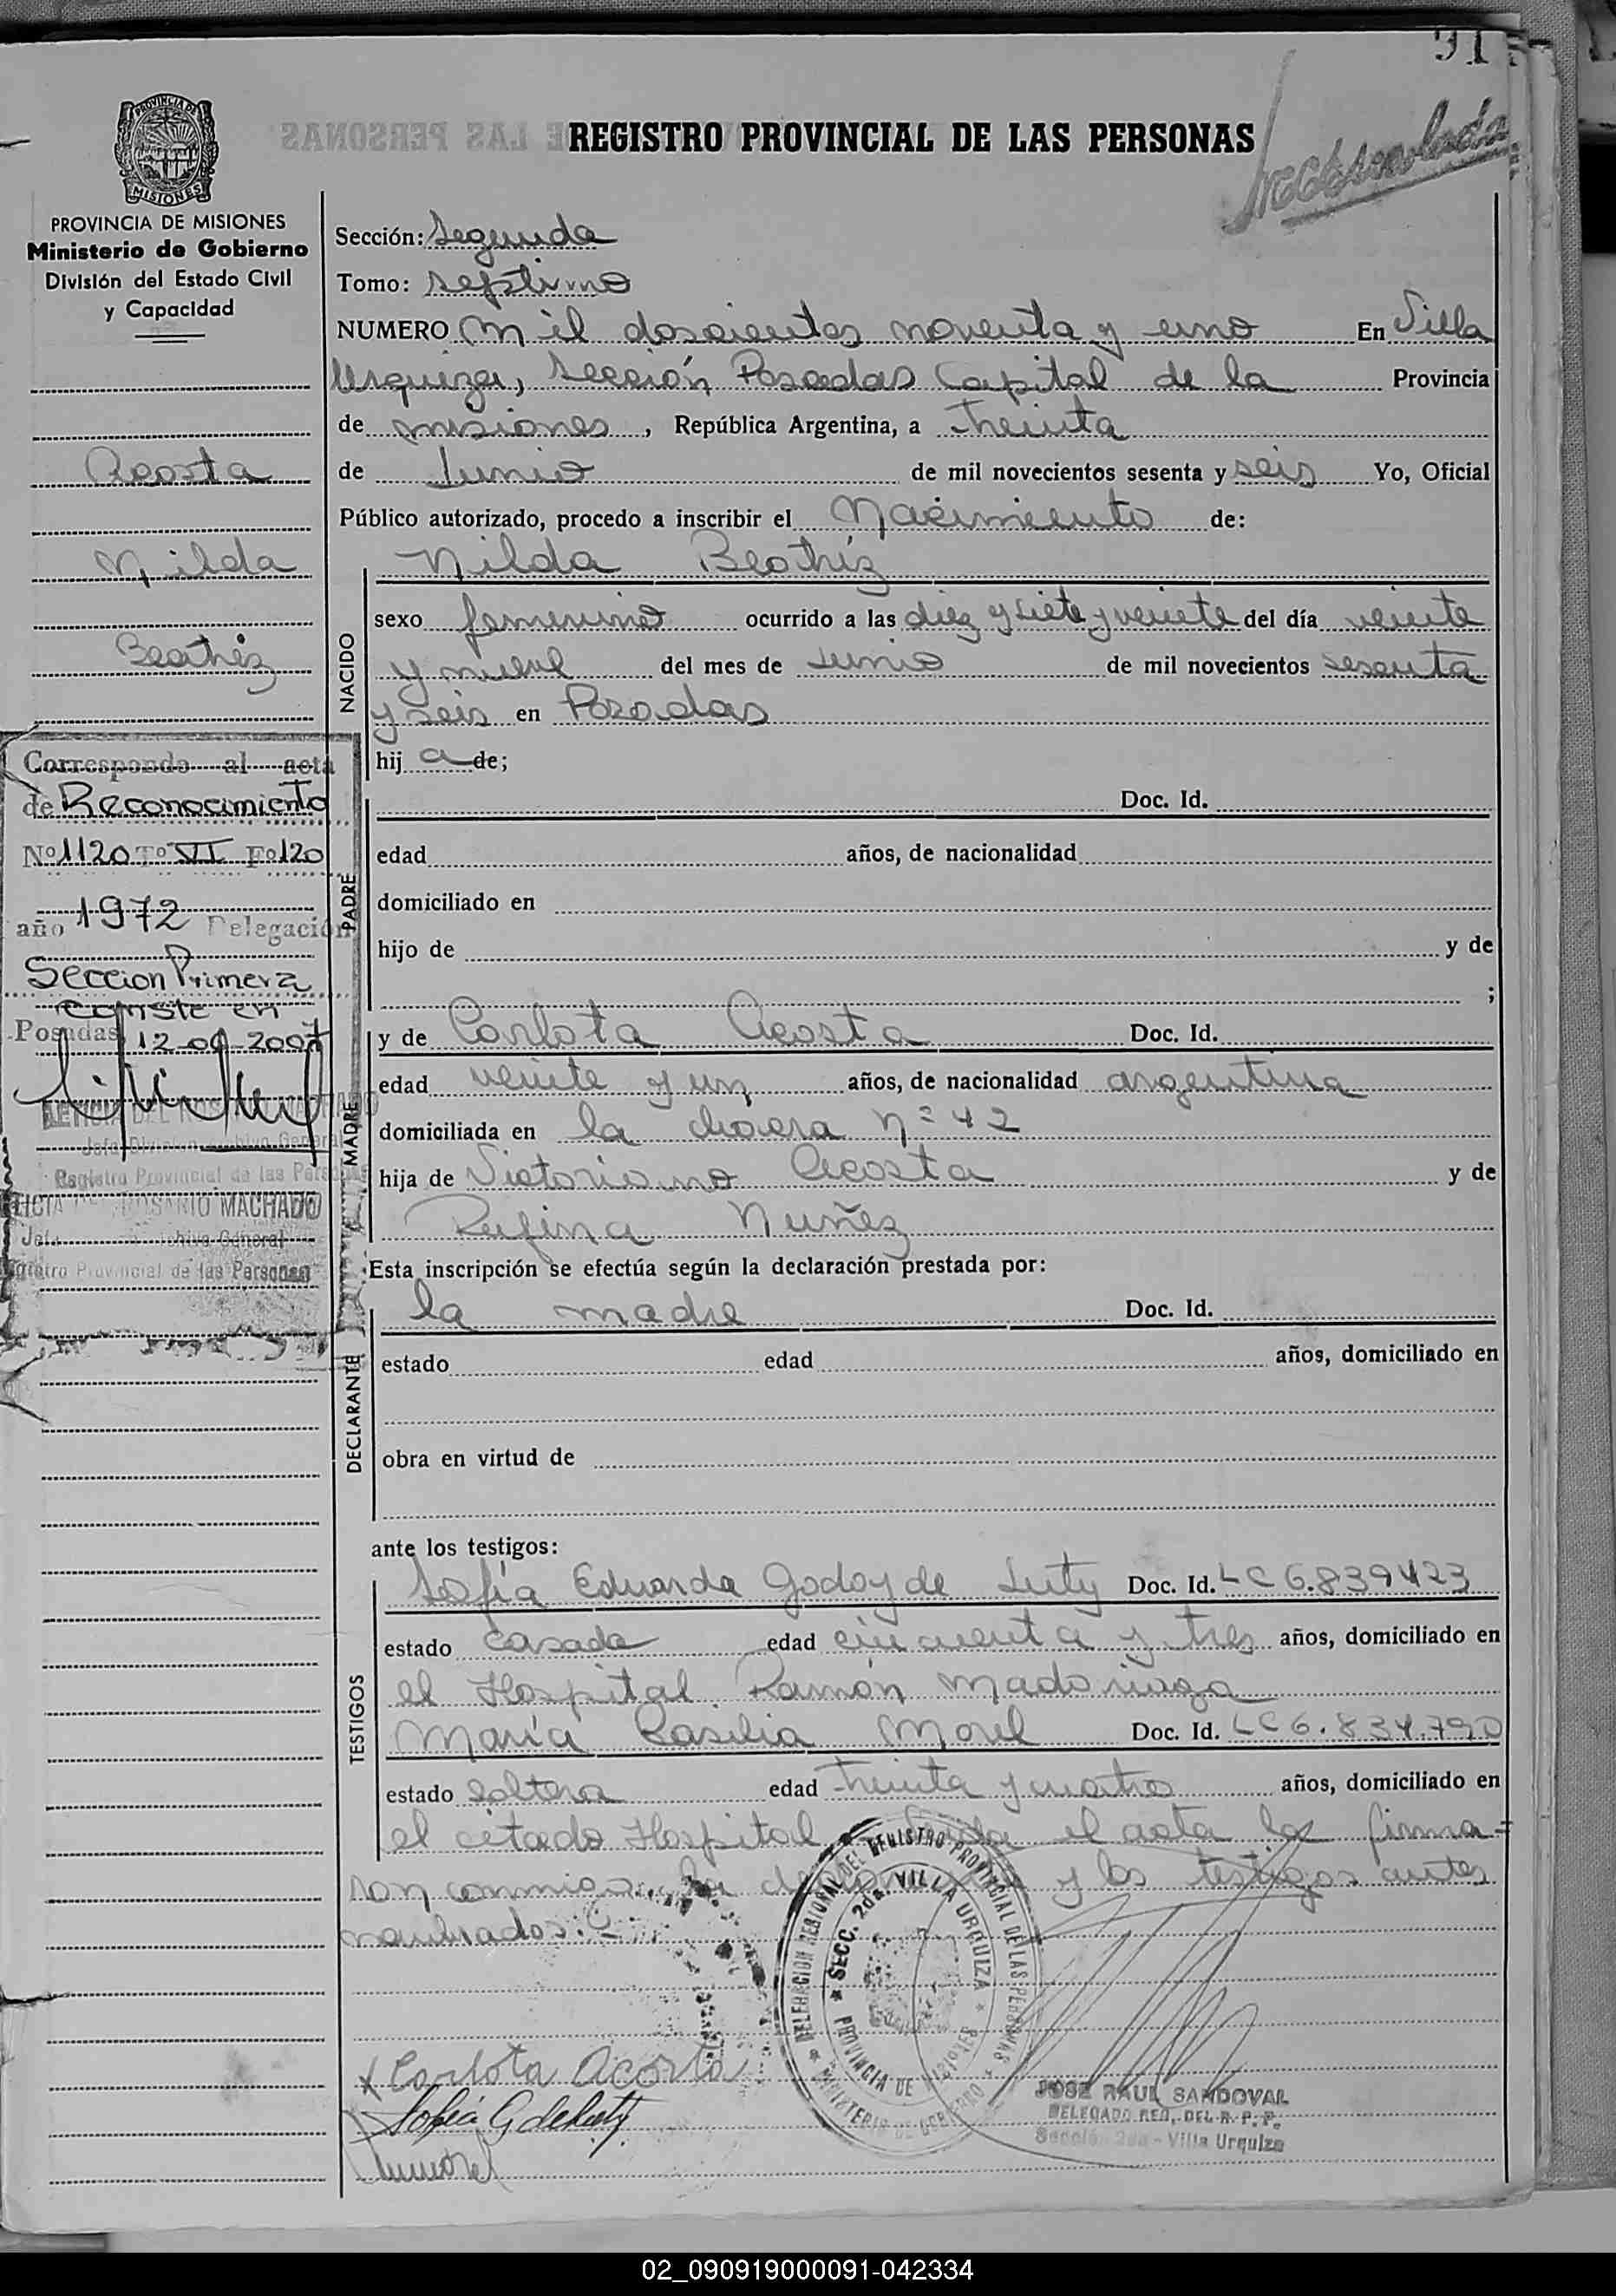 91
REGISTRO PROVINCIAL DE LAS PERSONAS
PROVINCIA DE MISIONES
Ministerio de Gobierno
División del Estado Civil
y Capacidad
Acosta
Nilda
Beatriz
Corresponde al acta
de Reconocimiento
Nº 1120 Tº VI Fº 120
año 1972 Delegación
Sección Primera
Conste en
Posadas 12-09-2007
Registro Provincial de las Personas
ROSARIO MACHADO
Archivo General
Registro Provincial de las Personas
Sección: Segunda
Tomo: septimo
NUMERO Mil doscientos noventa y uno En Villa
Urquiza, Sección Posadas Capital de la Provincia
de misiones, República Argentina, a treinta
de Junio de mil novecientos sesenta y seis Yo, Oficial
Público autorizado, procedo a inscribir el Nacimiento de:
Nilda Beatriz
NACIDO
sexo femenino ocurrido a las diez y siete y veinte del día veinte
y nueve del mes de Junio de mil novecientos sesenta
y seis en Posadas
hij a de;
PADRE
Doc. Id.
edad años, de nacionalidad
domiciliado en
hijo de y de
;
MADRE
y de Carlota Acosta Doc. Id.
edad veinte y un años, de nacionalidad argentina
domiciliada en la chacra nº 42
hija de Victoriano Acosta y de
Rufina Nuñez
Esta inscripción se efectúa según la declaración prestada por:
DECLARANTE
la madre Doc. Id.
estado edad años, domiciliado en
obra en virtud de
ante los testigos:
TESTIGOS
Sofía Eduarda Godoy de Luty Doc. Id. LC 6.839423
estado casada edad cincuenta y tres años, domiciliado en
el Hospital Ramón Madariaga
María Basilia Morel Doc. Id. LC 6.834.790
estado soltera edad treinta y cuatro años, domiciliado en
el citado Hospital. el acta la firma=
ron conmigo, la y los testigos antes
nombrados.=
DELEGACION REGIONAL DEL REGISTRO PROVINCIAL DE LAS PERSONAS
SECC. 2da. VILLA URQUIZA
PROVINCIA DE MISIONES
MINISTERIO DE GOBIERNO
x Carlota Acosta
Sofía G de Luty
JOSE RAUL SANDOVAL
DELEGADO REG. DEL R. P. P.
Sección 2da - Villa Urquiza
02_090919000091-042334